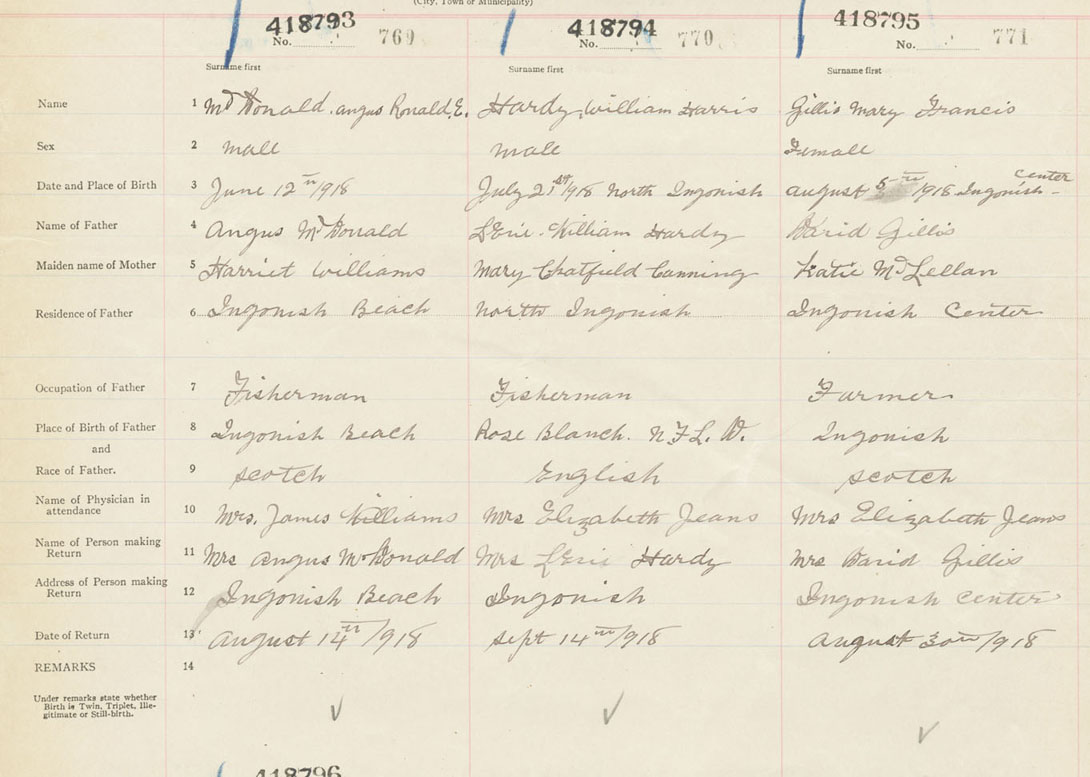 (City, Town or Municipality)
418793 418794 418795
No. 769 No. 770 No. 771
Surname first Surname first Surname first
Name 1 McDonald. Angus Ronald, E. Hardy, William Harris Gillis Mary Francis
Sex 2 Male Male Female
Date and Place of Birth 3 June 12th 1918 July 21st 1918 North Ingonish August 5th 1918 Ingonish Center
Name of Father 4 Angus McDonald William Hardy David Gillis
Maiden name of Mother 5 Harriet Williams Mary Chatfield Canning Katie McLellan
Residence of Father 6 Ingonish Beach North Ingonish Ingonish Center
Occupation of Father 7 Fisherman Fisherman Farmer
Place of Birth of Father 8 Ingonish Beach Rose Blanch. N.F.L.D. Ingonish
and
Race of Father. 9 Scotch English Scotch
Name of Physician in attendance 10 Mrs. James Williams Mrs Elizabeth Jeans Mrs Elizabeth Jeans
Name of Person making Return 11 Mrs Angus McDonald Mrs Hardy Mrs David Gillis
Address of Person making Return 12 Ingonish Beach Ingonish Ingonish Center
Date of Return 13 August 14th 1918 Sept 14th 1918 August 30th 1918
REMARKS 14
Under remarks state whether
Birth is Twin, Triplet, Ille-
gitimate or Still-birth.
418796